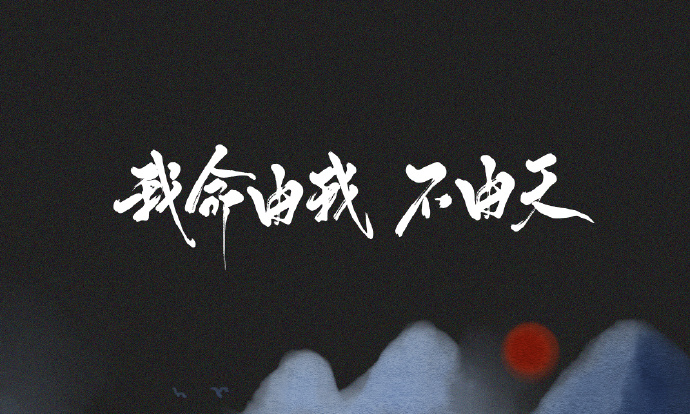 我命由我 不由天